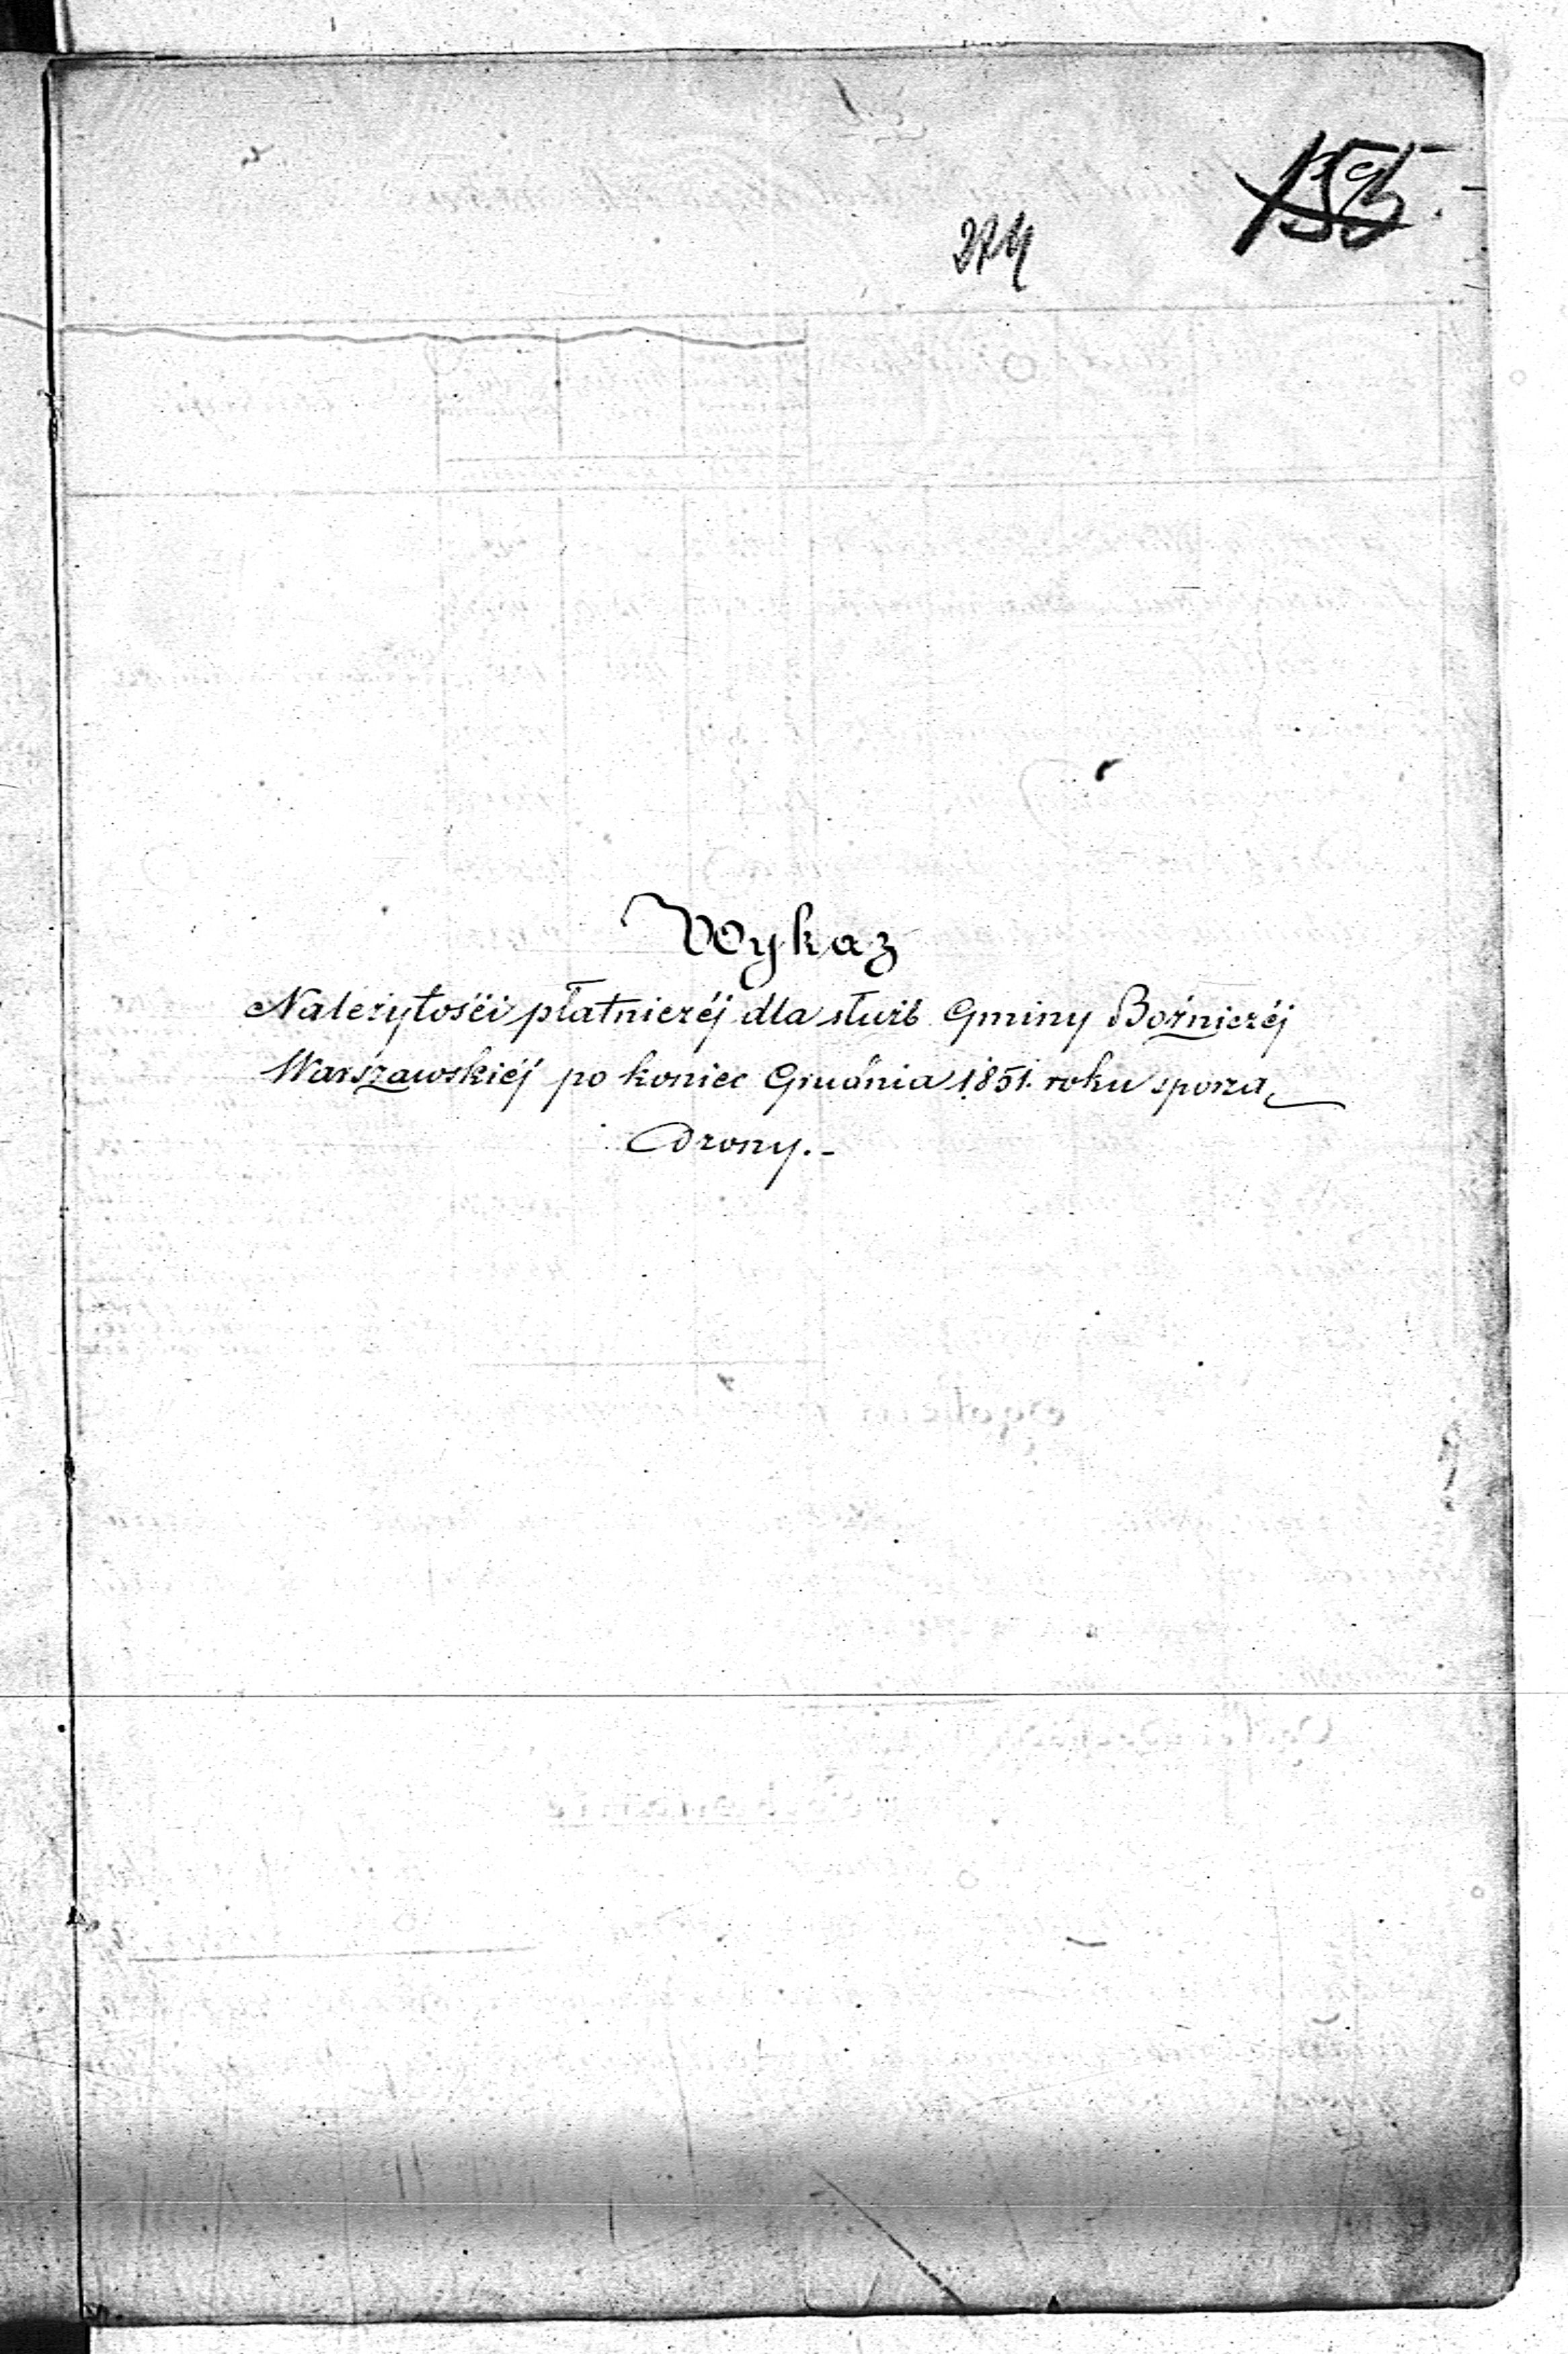 274
Wykaz
Należytości płatniczéj dla służb Gminy Bożniczéj
Warszawskiéj po koniec Grudnia 1851. roku sporzą
dzony.-